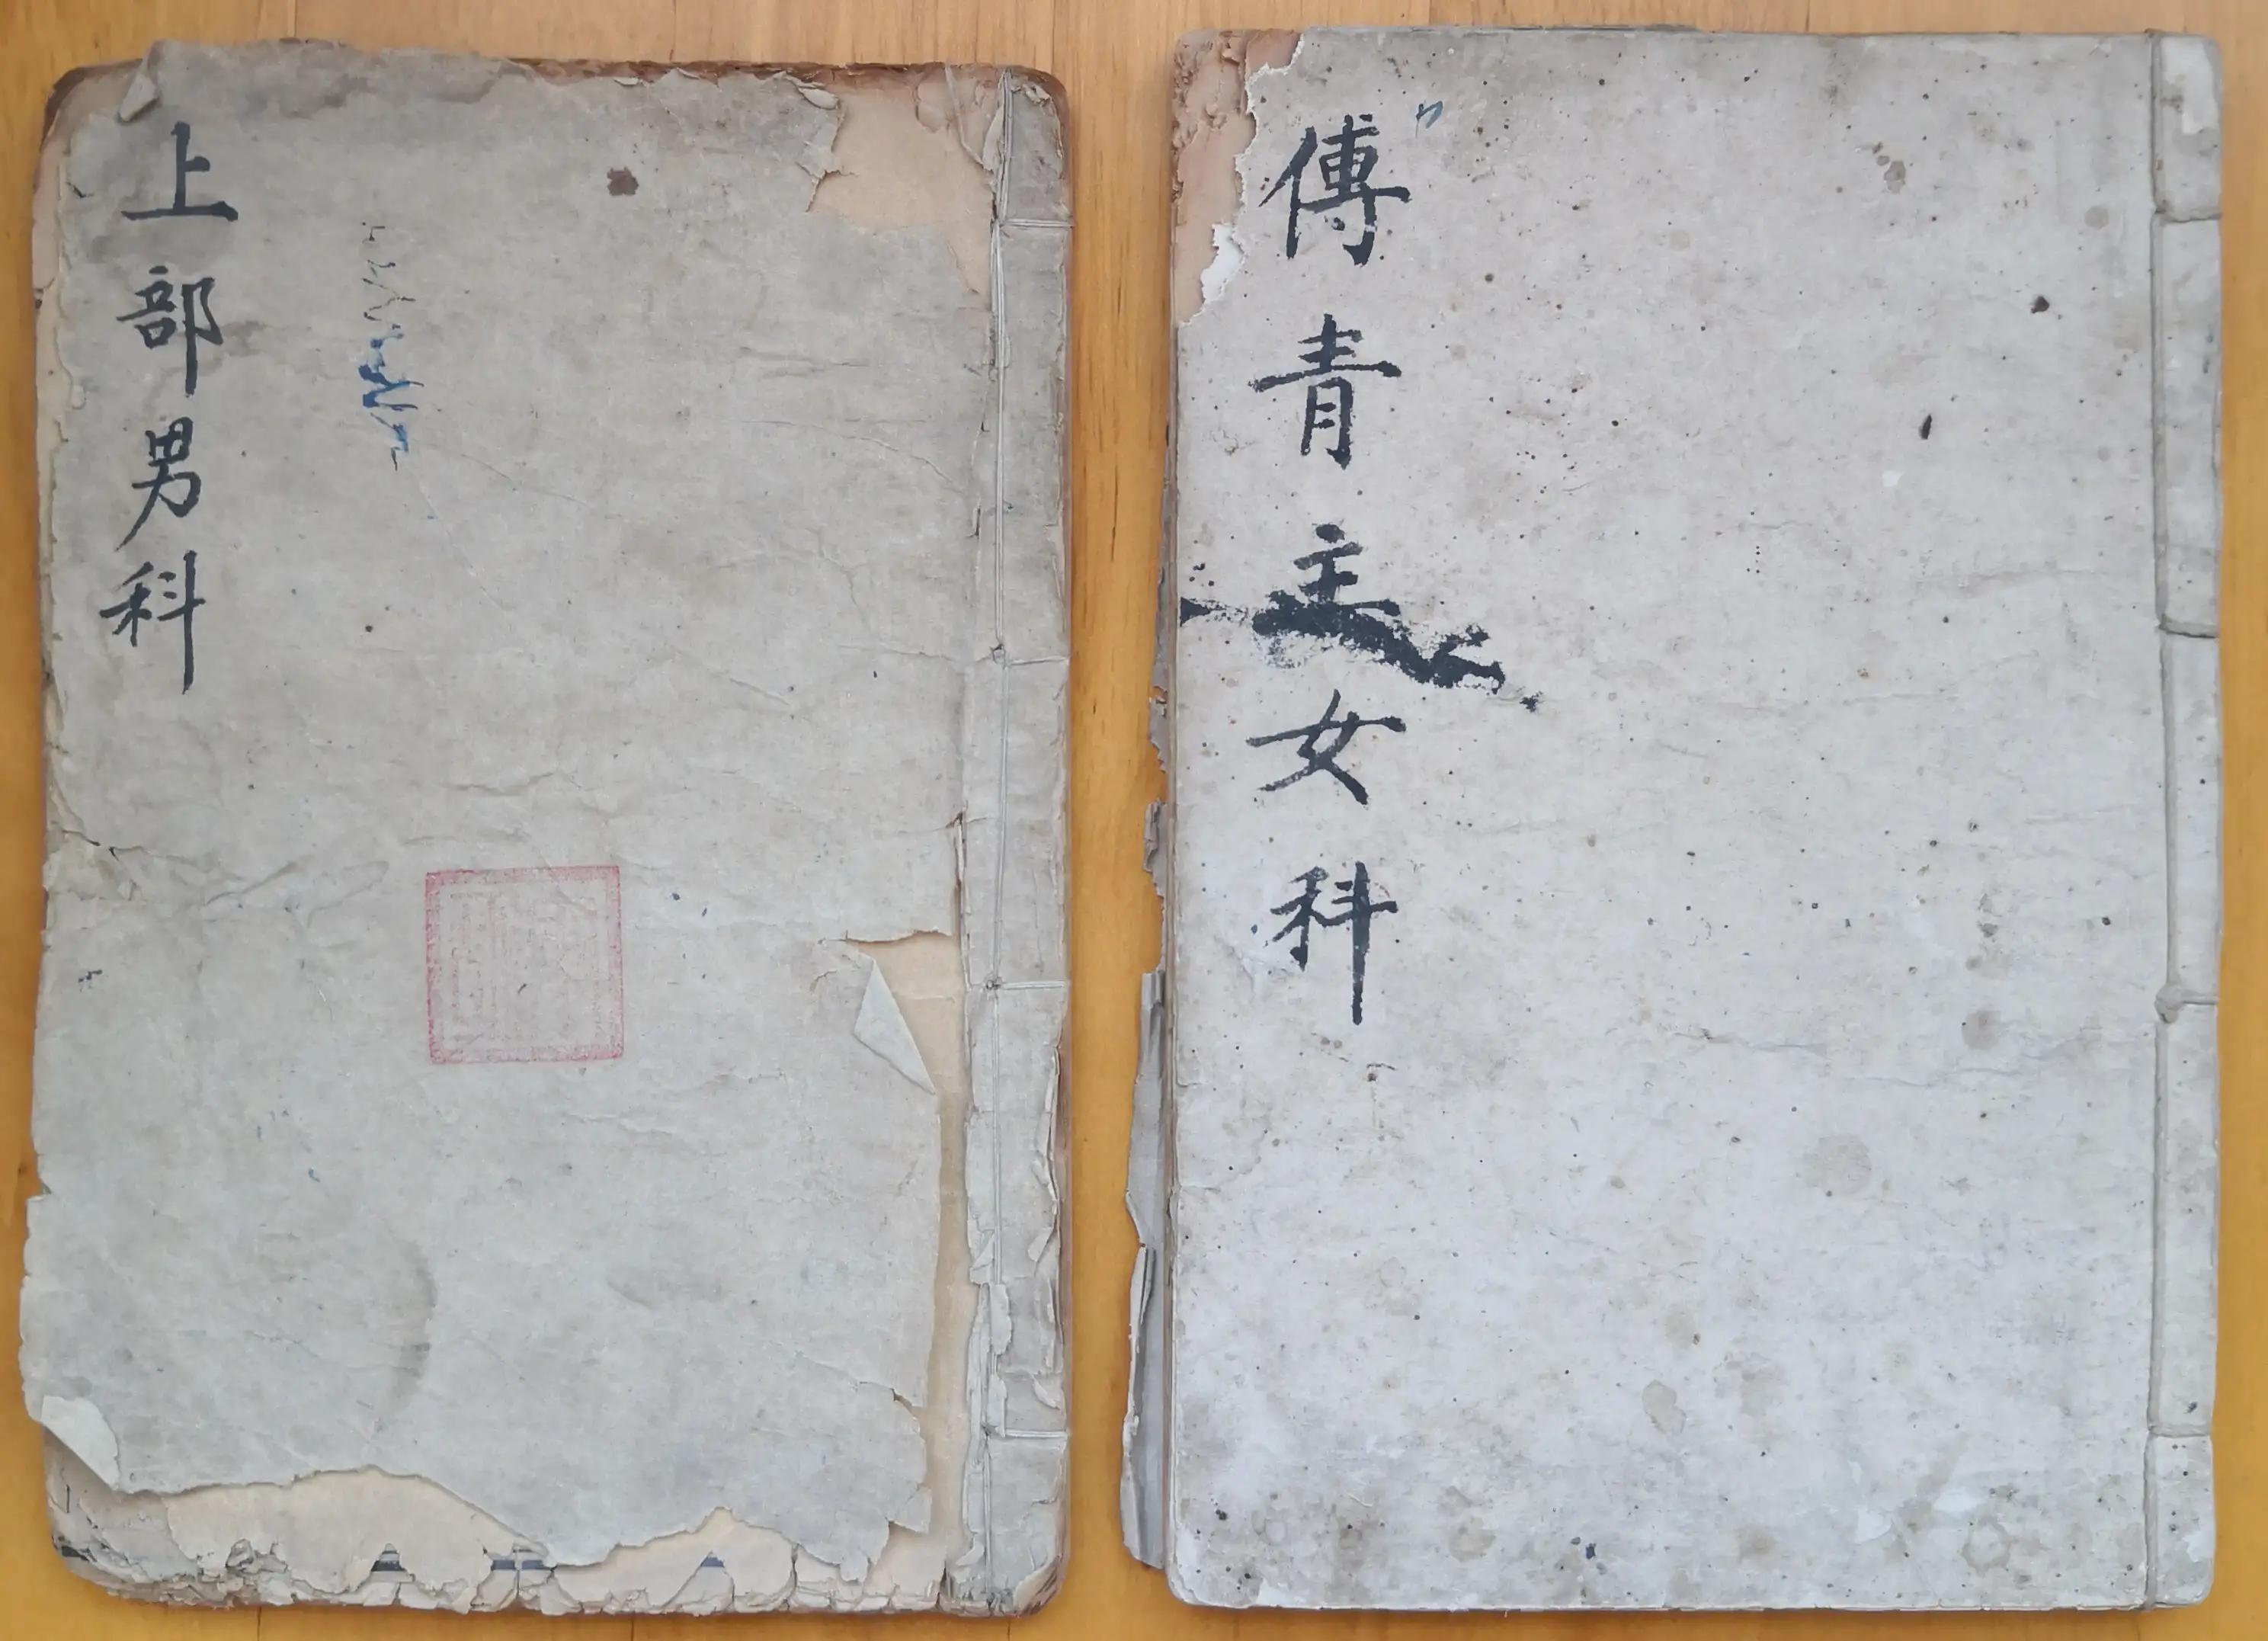 上部男科
傅青主女科